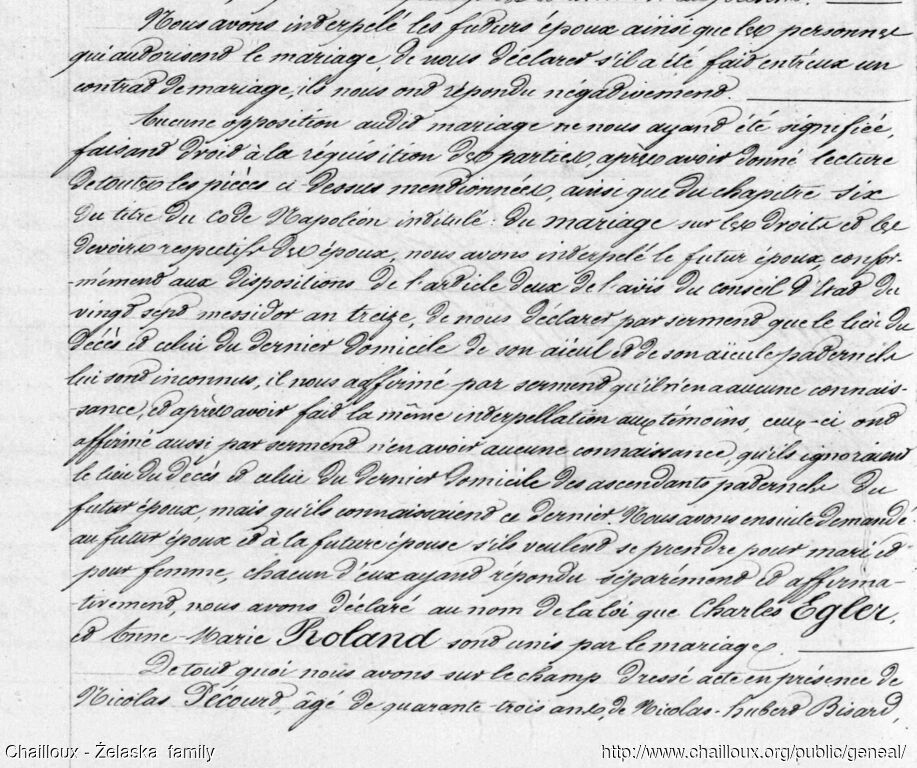 Nous avons interpelé les futurs époux ainsi que les personnes
qui autorisent le mariage, de nous déclarer s'il a été fait entr'eux un
contrat de mariage, ils nous ont répondu négativement.
Aucune opposition audit mariage ne nous ayant été signifiée,
faisant droit à la réquisition des parties, après avoir donné lecture
de toutes les pièces ci-dessus mentionnées, ainsi que du chapitre six
du titre du Code Napoléon intitulé : du mariage sur les droits et les
devoirs respectifs des époux, nous avons interpelé le futur époux, confor-
mément aux dispositions de l'article deux de l'avis du Conseil d'Etat du
vingt sept messidor an treize, de nous déclarer par serment que le lieu du
décès et celui du dernier domicile de son aïeul et de son aïeule paternels
lui sont inconnus, il nous a affirmé par serment qu'il n'en a aucune connais-
sance, et après avoir fait la même interpellation aux témoins, ceux-ci ont
affirmé aussi par serment n'en avoir aucune connaissance, qu'ils ignoraient
le lieu du décès et celui du dernier domicile des ascendants paternels du
futur époux, mais qu'ils connaissaient ce dernier. Nous avons ensuite demandé
au futur époux et à la future épouse s'ils veulent se prendre pour mari et
pour femme, chacun d'eux ayant répondu séparément et affirma-
tivement, nous avons déclaré au nom de la loi que Charles Egler,
et Anne-Marie Roland sont unis par le mariage.
De tout quoi nous avons sur le champ dressé acte en présence de
Nicolas Pécourt, âgé de quarante-trois ans, de Nicolas-hubert Bisard,
Chailloux - Želaska family
http://www.chailloux.org/public/geneal/